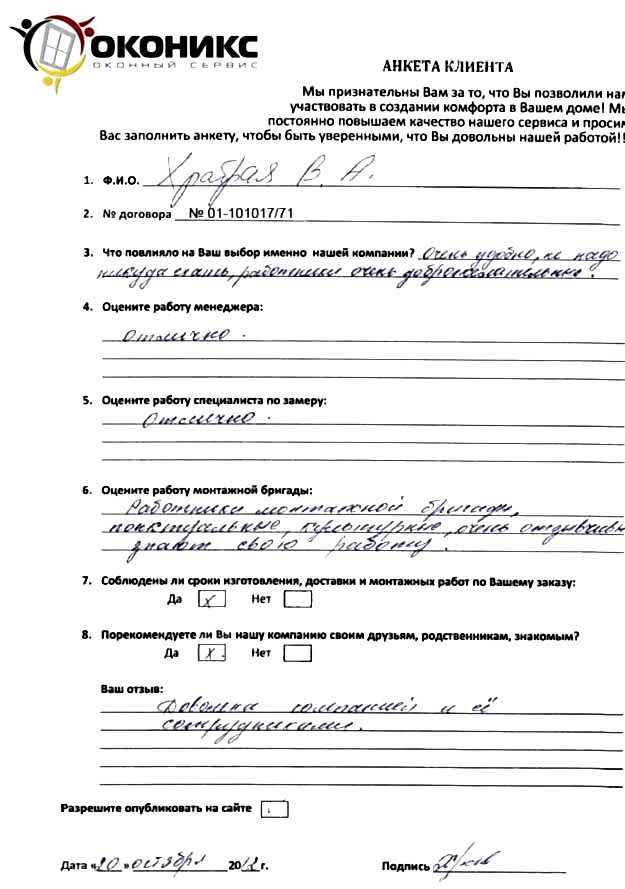 ОКОНИКС
ОКОННЫЙ СЕРВИС
АНКЕТА КЛИЕНТА
Мы признательны Вам за то, что Вы позволили нам
участвовать в создании комфорта в Вашем доме! Мы
постоянно повышаем качество нашего сервиса и просим
Вас заполнить анкету, чтобы быть уверенными, что Вы довольны нашей работой!!
1. Ф.И.О. Храбрая В. А.
2. № договора № 01-101017/71
3. Что повлияло на Ваш выбор именно нашей компании? Очень удобно, не надо
никуда ехать, работники очень доброжелательные.
4. Оцените работу менеджера:
Отлично.
5. Оцените работу специалиста по замеру:
Отлично.
6. Оцените работу монтажной бригады:
Работники монтажной бригады,
пунктуальные, культурные, очень отзывчивы
знают свою работу.
7. Соблюдены ли сроки изготовления, доставки и монтажных работ по Вашему заказу:
Да X Нет
8. Порекомендуете ли Вы нашу компанию своим друзьям, родственникам, знакомым?
Да X Нет
Ваш отзыв:
Довольна компанией и её
сотрудниками.
Разрешите опубликовать на сайте
Дата «20» октября 2012 г. Подпись